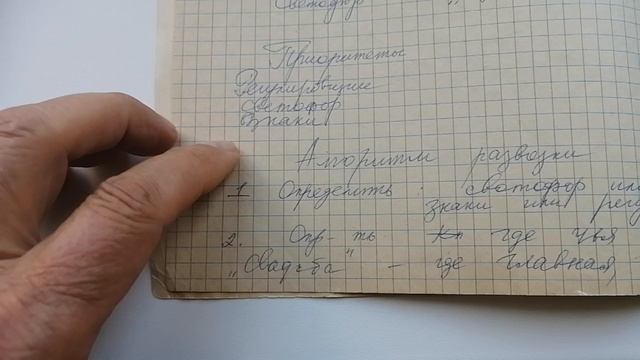 Светофор "
Приоритеты
Регулировщик
Светофор
Знаки
Алгоритм развозки
1 Определить : светофор или
знаки или регу
2. Опр-ть где чья
"Свадьба" - где главная